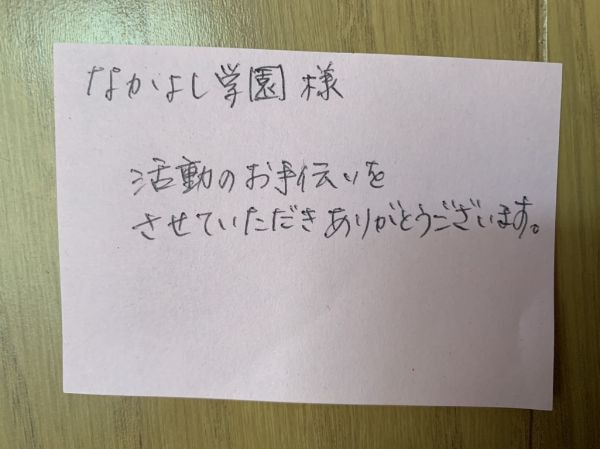 なかよし学園 様
活動のお手伝いを
させていただきありがとうございます。